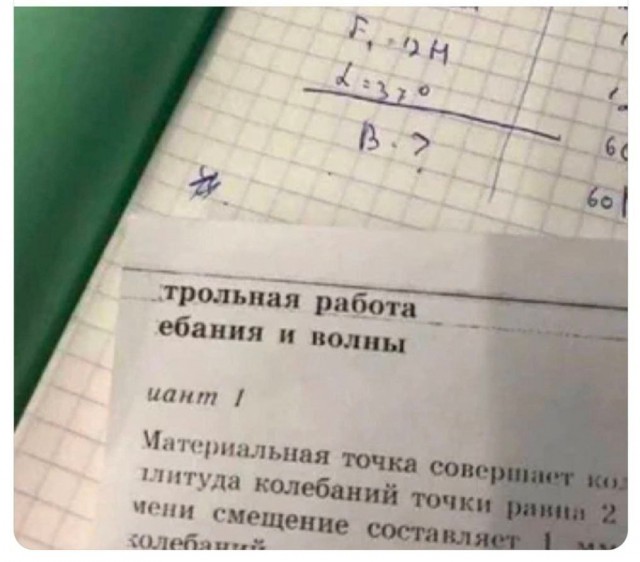 F₁ = 12 Н
α = 37°
B - ?
60
трольная работа
ебания и волны
иант 1
Материальная точка совершает кол
плитуда колебаний точки равна 2
мени смещение составляет 1 мм
колебаний